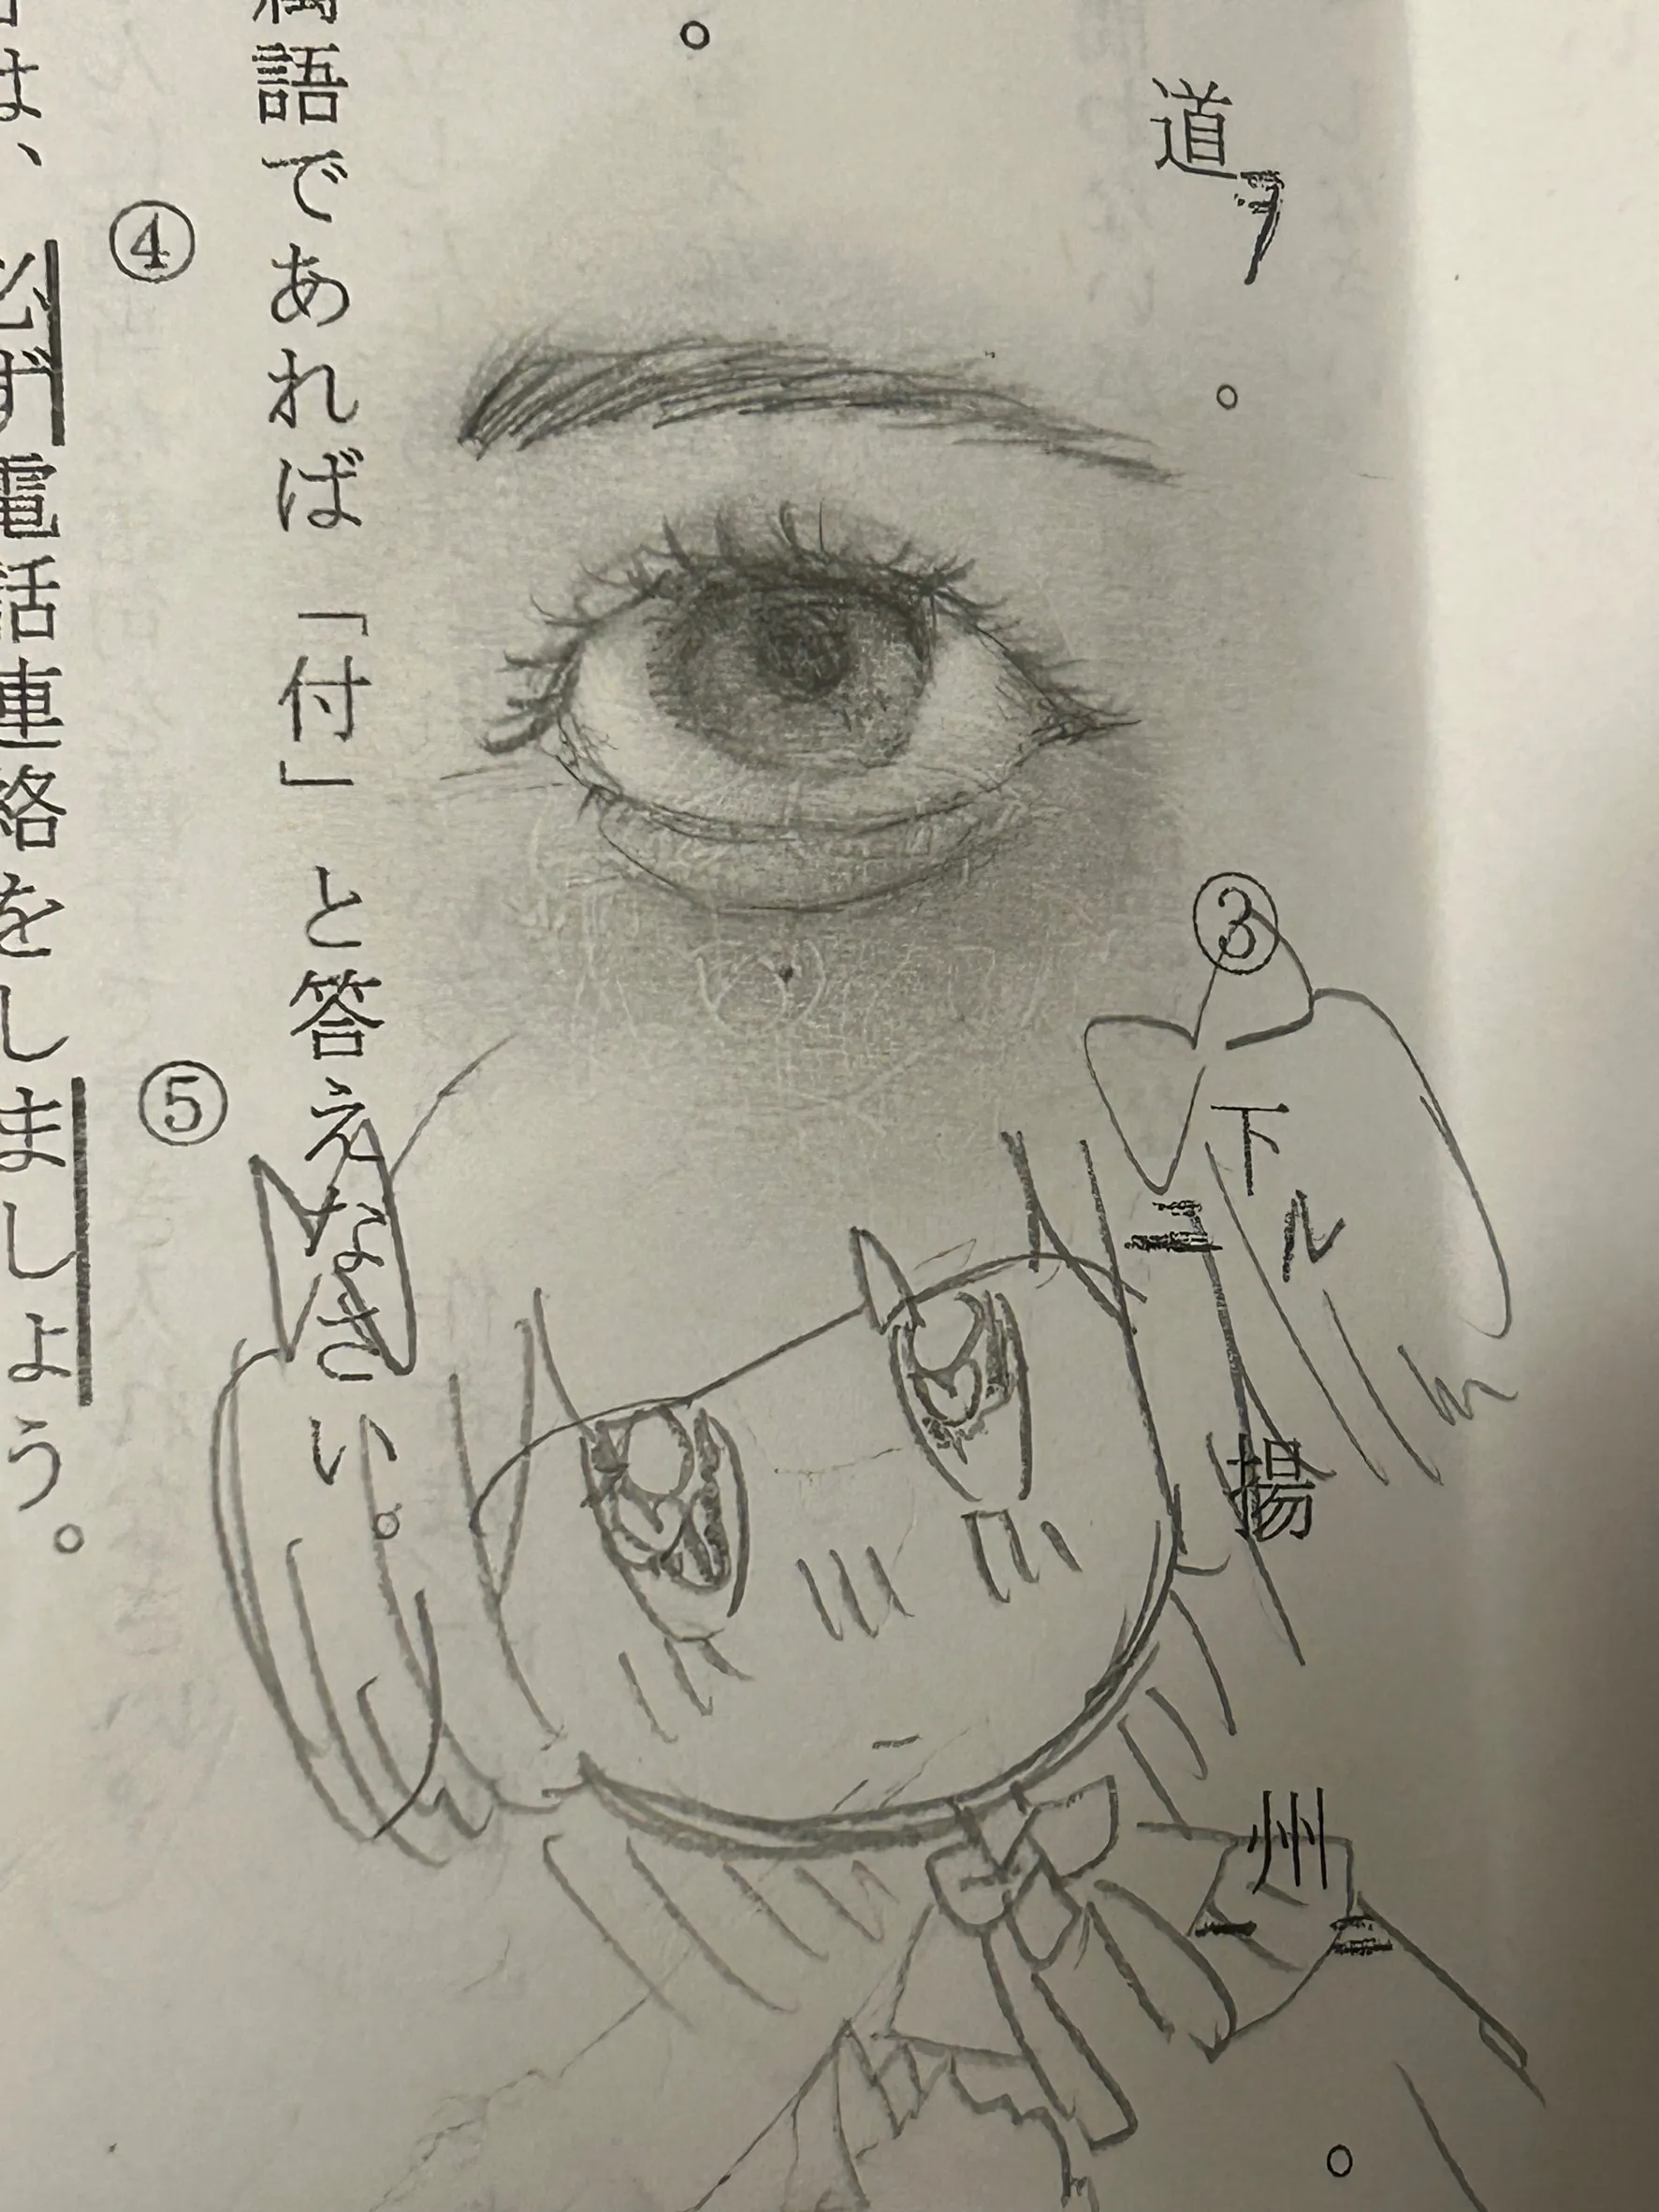 道ヲ。
③
下ル二揚州一ニ。
。
属語であれば「付」と答えなさい。
④ ⑤
は、必ず電話連絡をしましょう。